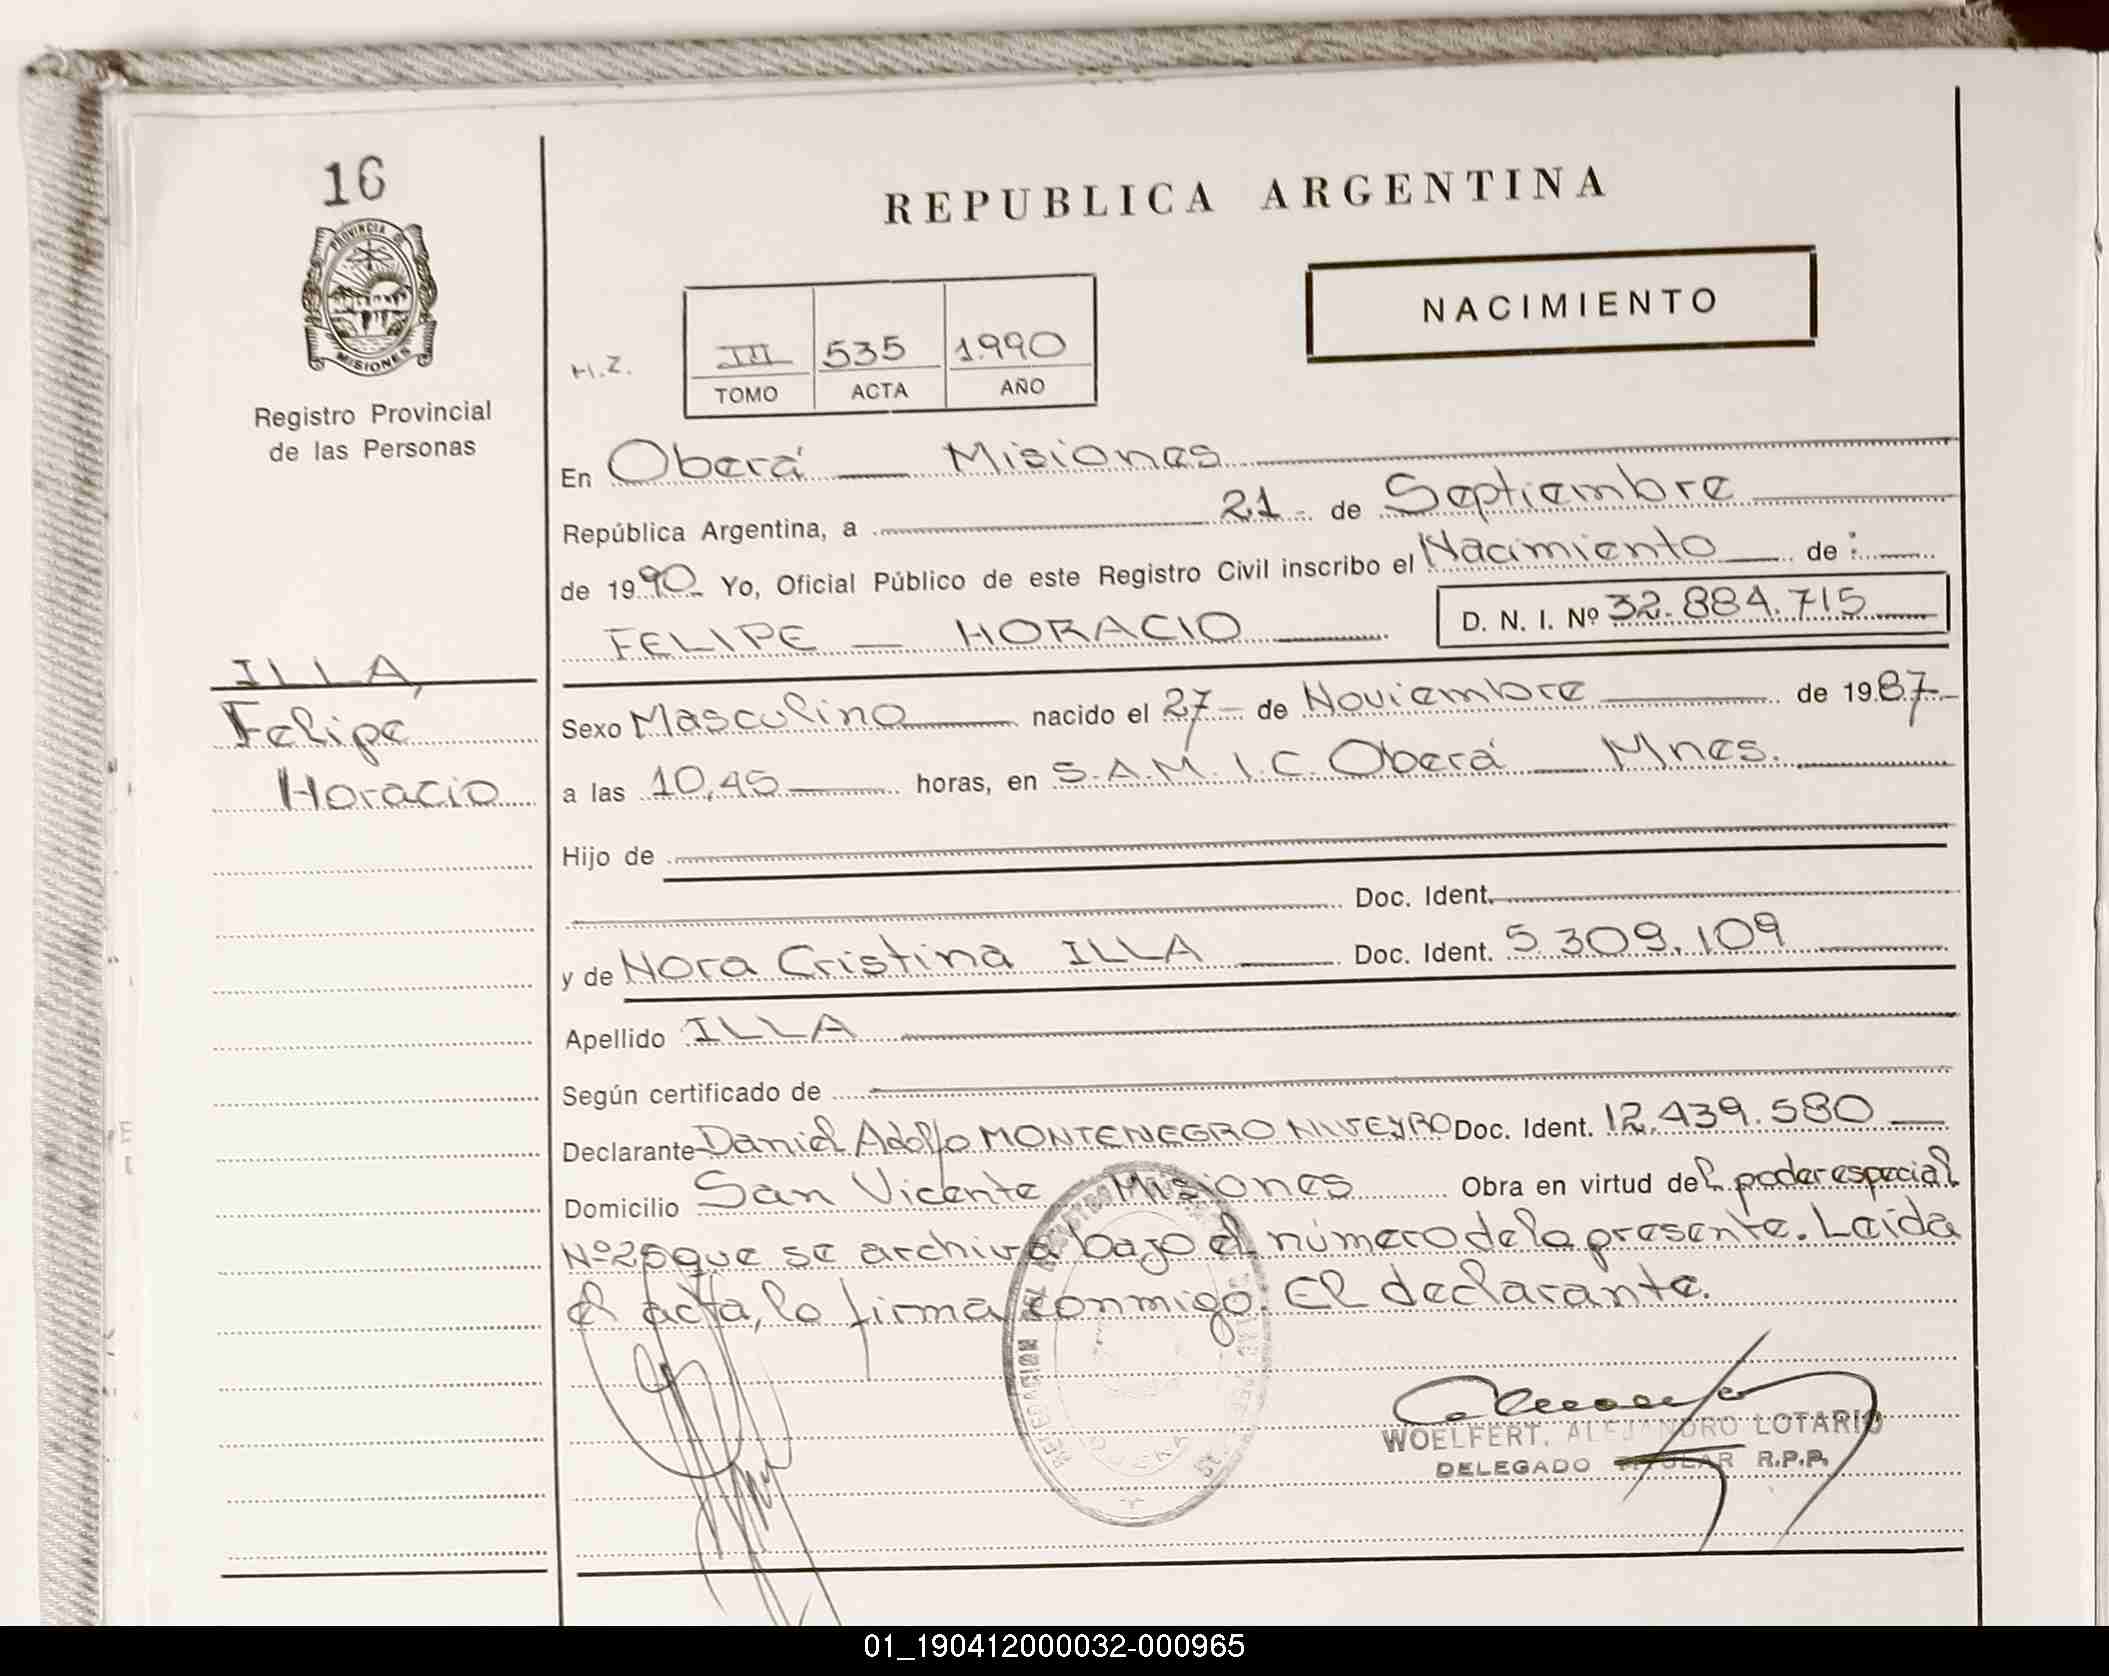 16
PROVINCIA DE
MISIONES
Registro Provincial
de las Personas
REPUBLICA ARGENTINA
NACIMIENTO
H.Z.
III 535 1.990
TOMO ACTA AÑO
En Oberá — Misiones
República Argentina, a 21 - de Septiembre
de 1990 Yo, Oficial Público de este Registro Civil inscribo el Nacimiento de :
FELIPE — HORACIO D. N. I. Nº 32.884.715
ILLA,
Felipe
Horacio
Sexo Masculino nacido el 27 - de Noviembre de 1987
a las 10,45 horas, en S.A.M.I.C. Oberá — Mnes.
Hijo de
Doc. Ident.
y de Nora Cristina ILLA Doc. Ident. 5.309.109
Apellido ILLA
Según certificado de
Declarante Daniel Adolfo MONTENEGRO Doc. Ident. 12.439.580
Domicilio San Vicente Misiones Obra en virtud del poder especial
Nº 25 que se archiva bajo el número de la presente. Leida
el acta, lo firma conmigo. El declarante.
WOELFERT, ALEJANDRO LOTARIO
DELEGADO TITULAR R.P.P.
01_190412000032-000965